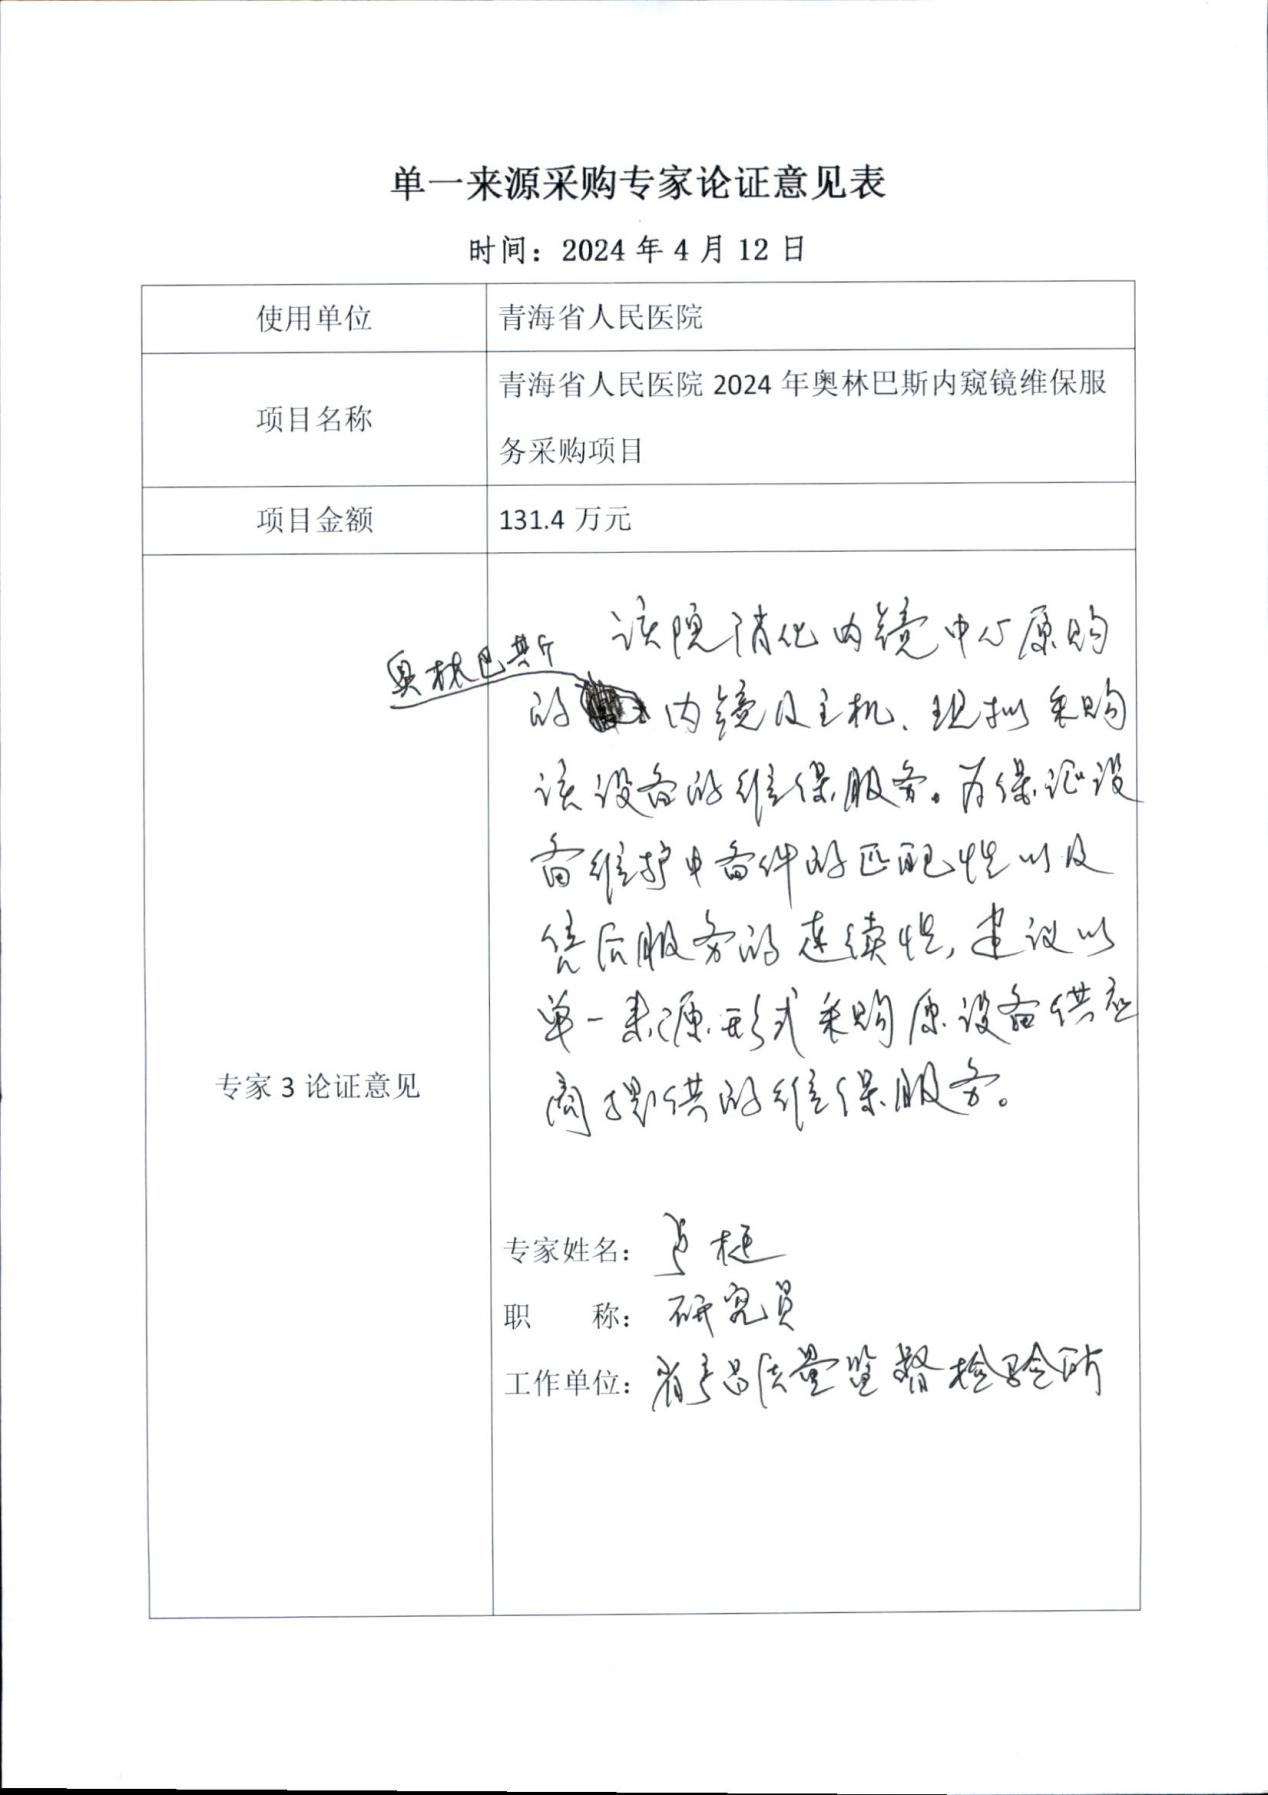 单一来源采购专家论证意见表
时间：2024 年 4 月 12 日
使用单位
青海省人民医院
项目名称
青海省人民医院 2024 年奥林巴斯内窥镜维保服
务采购项目
项目金额
131.4 万元
专家 3 论证意见
该院消化内镜中心原购
奥林巴斯
的 内镜及主机、现拟采购
该设备的维保服务。为保证设
备维护中备件的匹配性以及
售后服务的连续性，建议以
单一来源形式采购原设备供应
商提供的维保服务。
专家姓名：
职 称：研究员
工作单位：省产品质量监督检验所